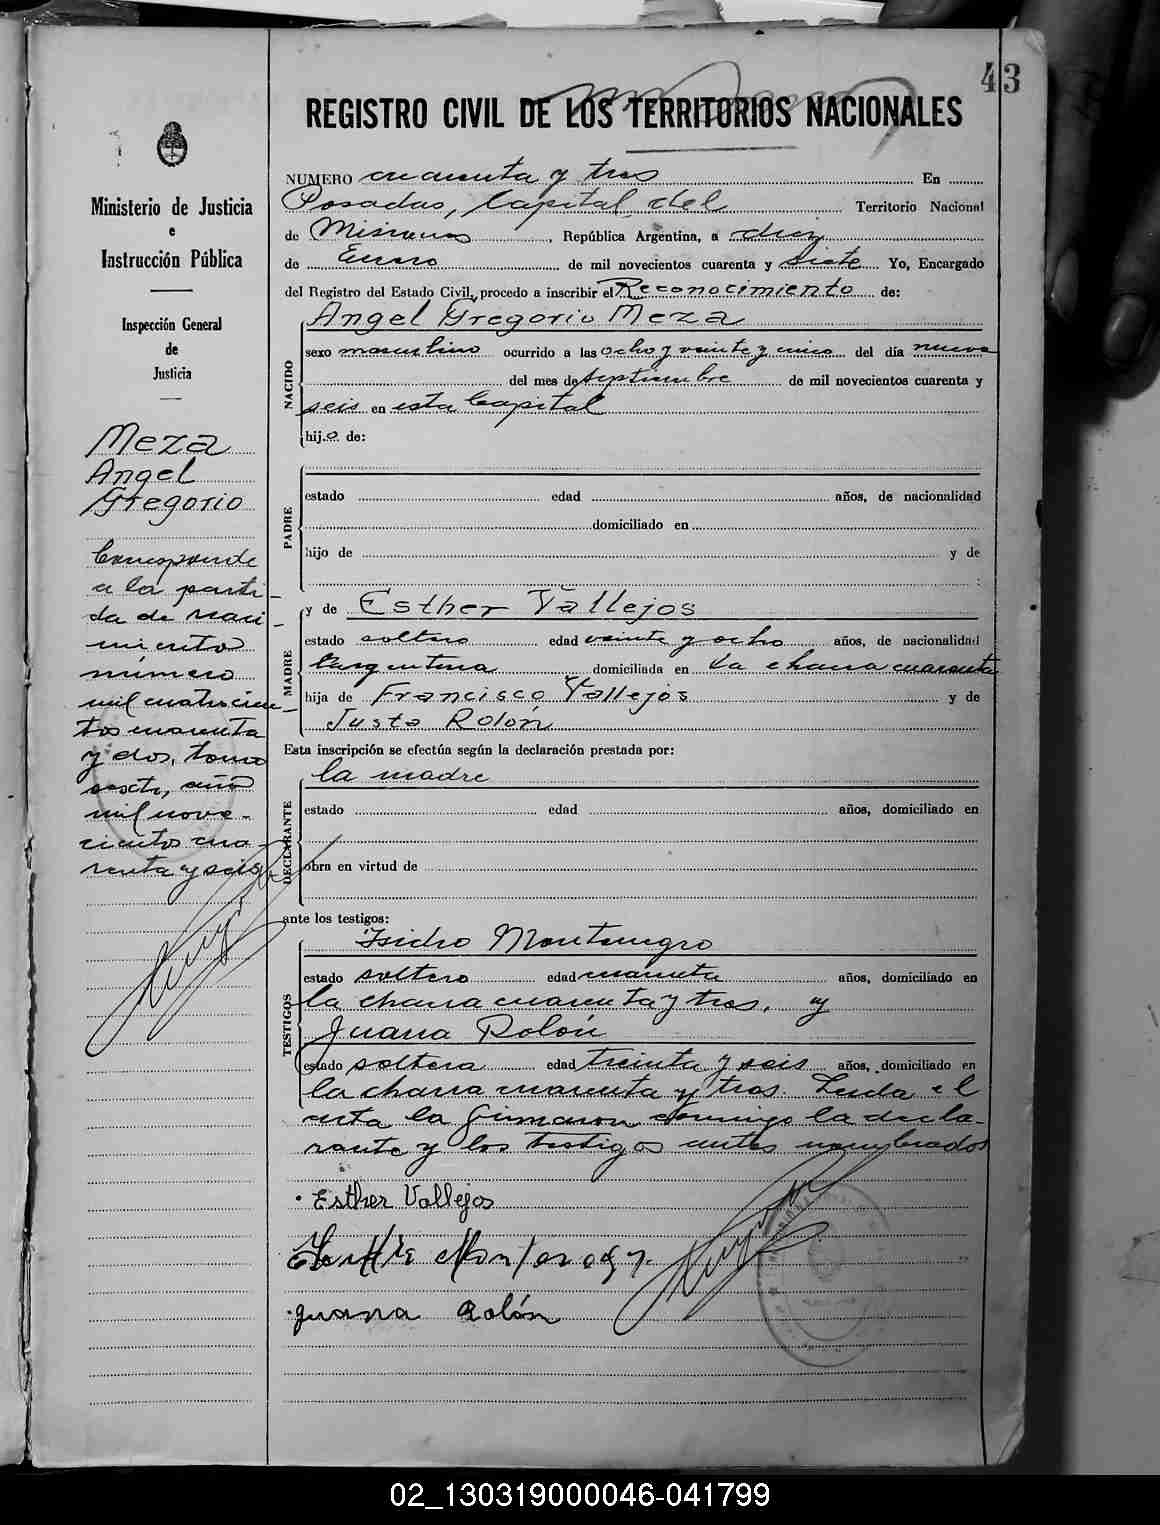 43
REGISTRO CIVIL DE LOS TERRITORIOS NACIONALES
Ministerio de Justicia
e
Instrucción Pública
Inspección General
de
Justicia
Meza
Angel
Gregorio
Corresponde
a la parti-
da de naci-
miento
número
mil cuatrocien-
tos cuarenta
y dos, tomo
sexto, año
mil nove-
cientos cua-
renta y seis
NUMERO cuarenta y tres En
Posadas, Capital del Territorio Nacional
de Misiones, República Argentina, a diez
de Enero de mil novecientos cuarenta y siete Yo, Encargado
del Registro del Estado Civil, procedo a inscribir el Reconocimiento de:
Angel Gregorio Meza
NACIDO
sexo masculino ocurrido a las ocho y veinte y cinco del día nueve
del mes de septiembre de mil novecientos cuarenta y
seis en esta Capital
hijo de:
PADRE
estado edad años, de nacionalidad
domiciliado en
hijo de y de
:
y de Esther Vallejos
MADRE
estado soltera edad veinte y ocho años, de nacionalidad
argentina domiciliada en la chacra cuarenta
hija de Francisco Vallejos y de
Justa Rolón
Esta inscripción se efectúa según la declaración prestada por:
la madre
DECLARANTE
estado edad años, domiciliado en
obra en virtud de
ante los testigos:
Isidro Montenegro
TESTIGOS
estado soltero edad cuarenta años, domiciliado en
la chacra cuarenta y tres, y
Juana Rolón
estado soltera edad treinta y seis años, domiciliado en
la chacra cuarenta y tres. Leida el
acta la firmaron conmigo la decla-
rante y los testigos antes nombrados
Esther Vallejos
Juana Rolón
02_130319000046-041799